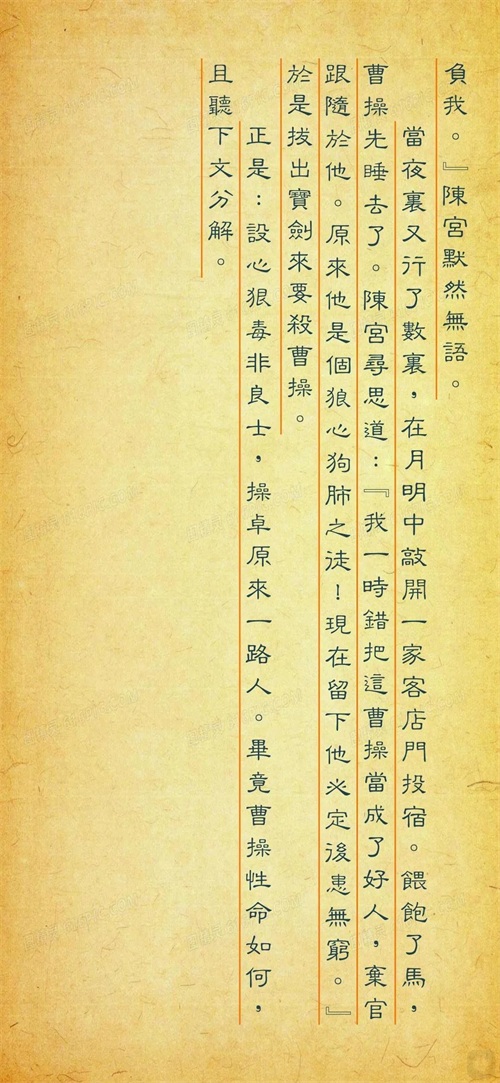 負我。』陳宮默然無語。
當夜裏又行了數裏，在月明中敲開一家客店門投宿。餵飽了馬，
曹操先睡去了。陳宮尋思道：『我一時錯把這曹操當成了好人，棄官
跟隨於他。原來他是個狼心狗肺之徒！現在留下他必定後患無窮。』
於是拔出寶劍來要殺曹操。
正是：設心狠毒非良士，操卓原來一路人。畢竟曹操性命如何，
且聽下文分解。